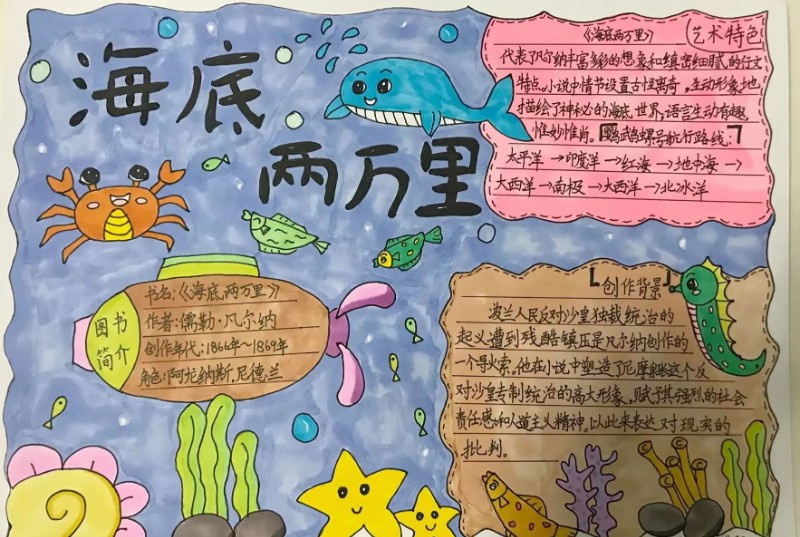 海底
两万里
《海底两万里》
艺术特色
代表了凡尔纳丰富多彩的想象和缜密细腻的行文
特点。小说中情节设置古怪离奇，生动形象地
描绘了神秘的海底世界，语言生动有趣
惟妙惟肖。『鹦鹉螺号航行路线』
太平洋→印度洋→红海→地中海→
大西洋→南极→大西洋→北冰洋
图书
简介
书名:《海底两万里》
作者:儒勒·凡尔纳
创作年代:1866年～1869年
角色:阿龙纳斯,尼德兰
『创作背景』
波兰人民反对沙皇独裁统治的
起义遭到残酷镇压是凡尔纳创作的
一个导火索。他在小说中塑造了尼摩船长这个反
对沙皇专制统治的高大形象,赋予其强烈的社会
责任感和人道主义精神,以此来表达对现实的
批判。